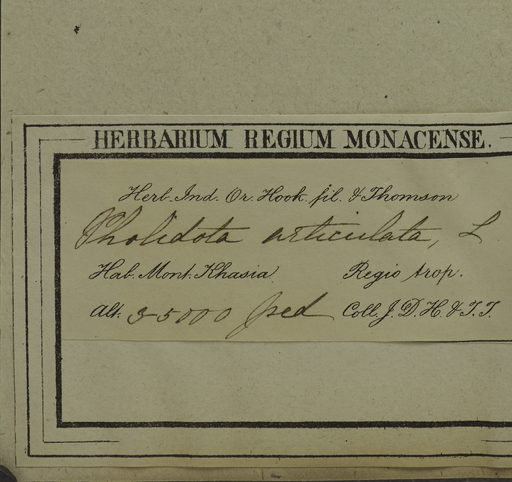 HERBARIUM REGIUM MONACENSE.
Herb. Ind. Or. Hook. fil. & Thomson
Pholidota articulata, L
Hab. Mont. Khasia Regio trop.
Alt. 3-5000 ped Coll. J. D. H. & T. T.